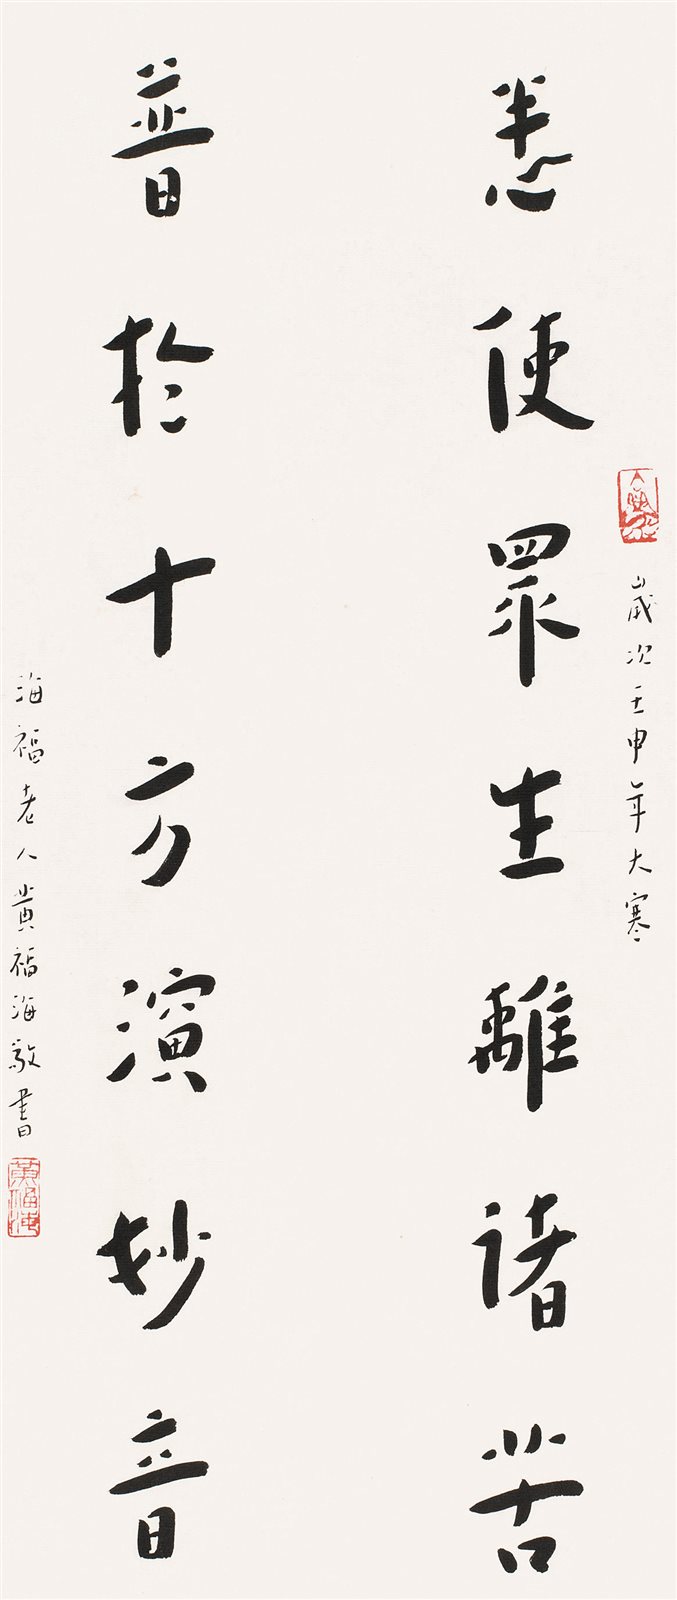 歲次壬申年大寒
悉使眾生離諸苦
普於十方演妙音
海福老人黄福海敬書
黃福海